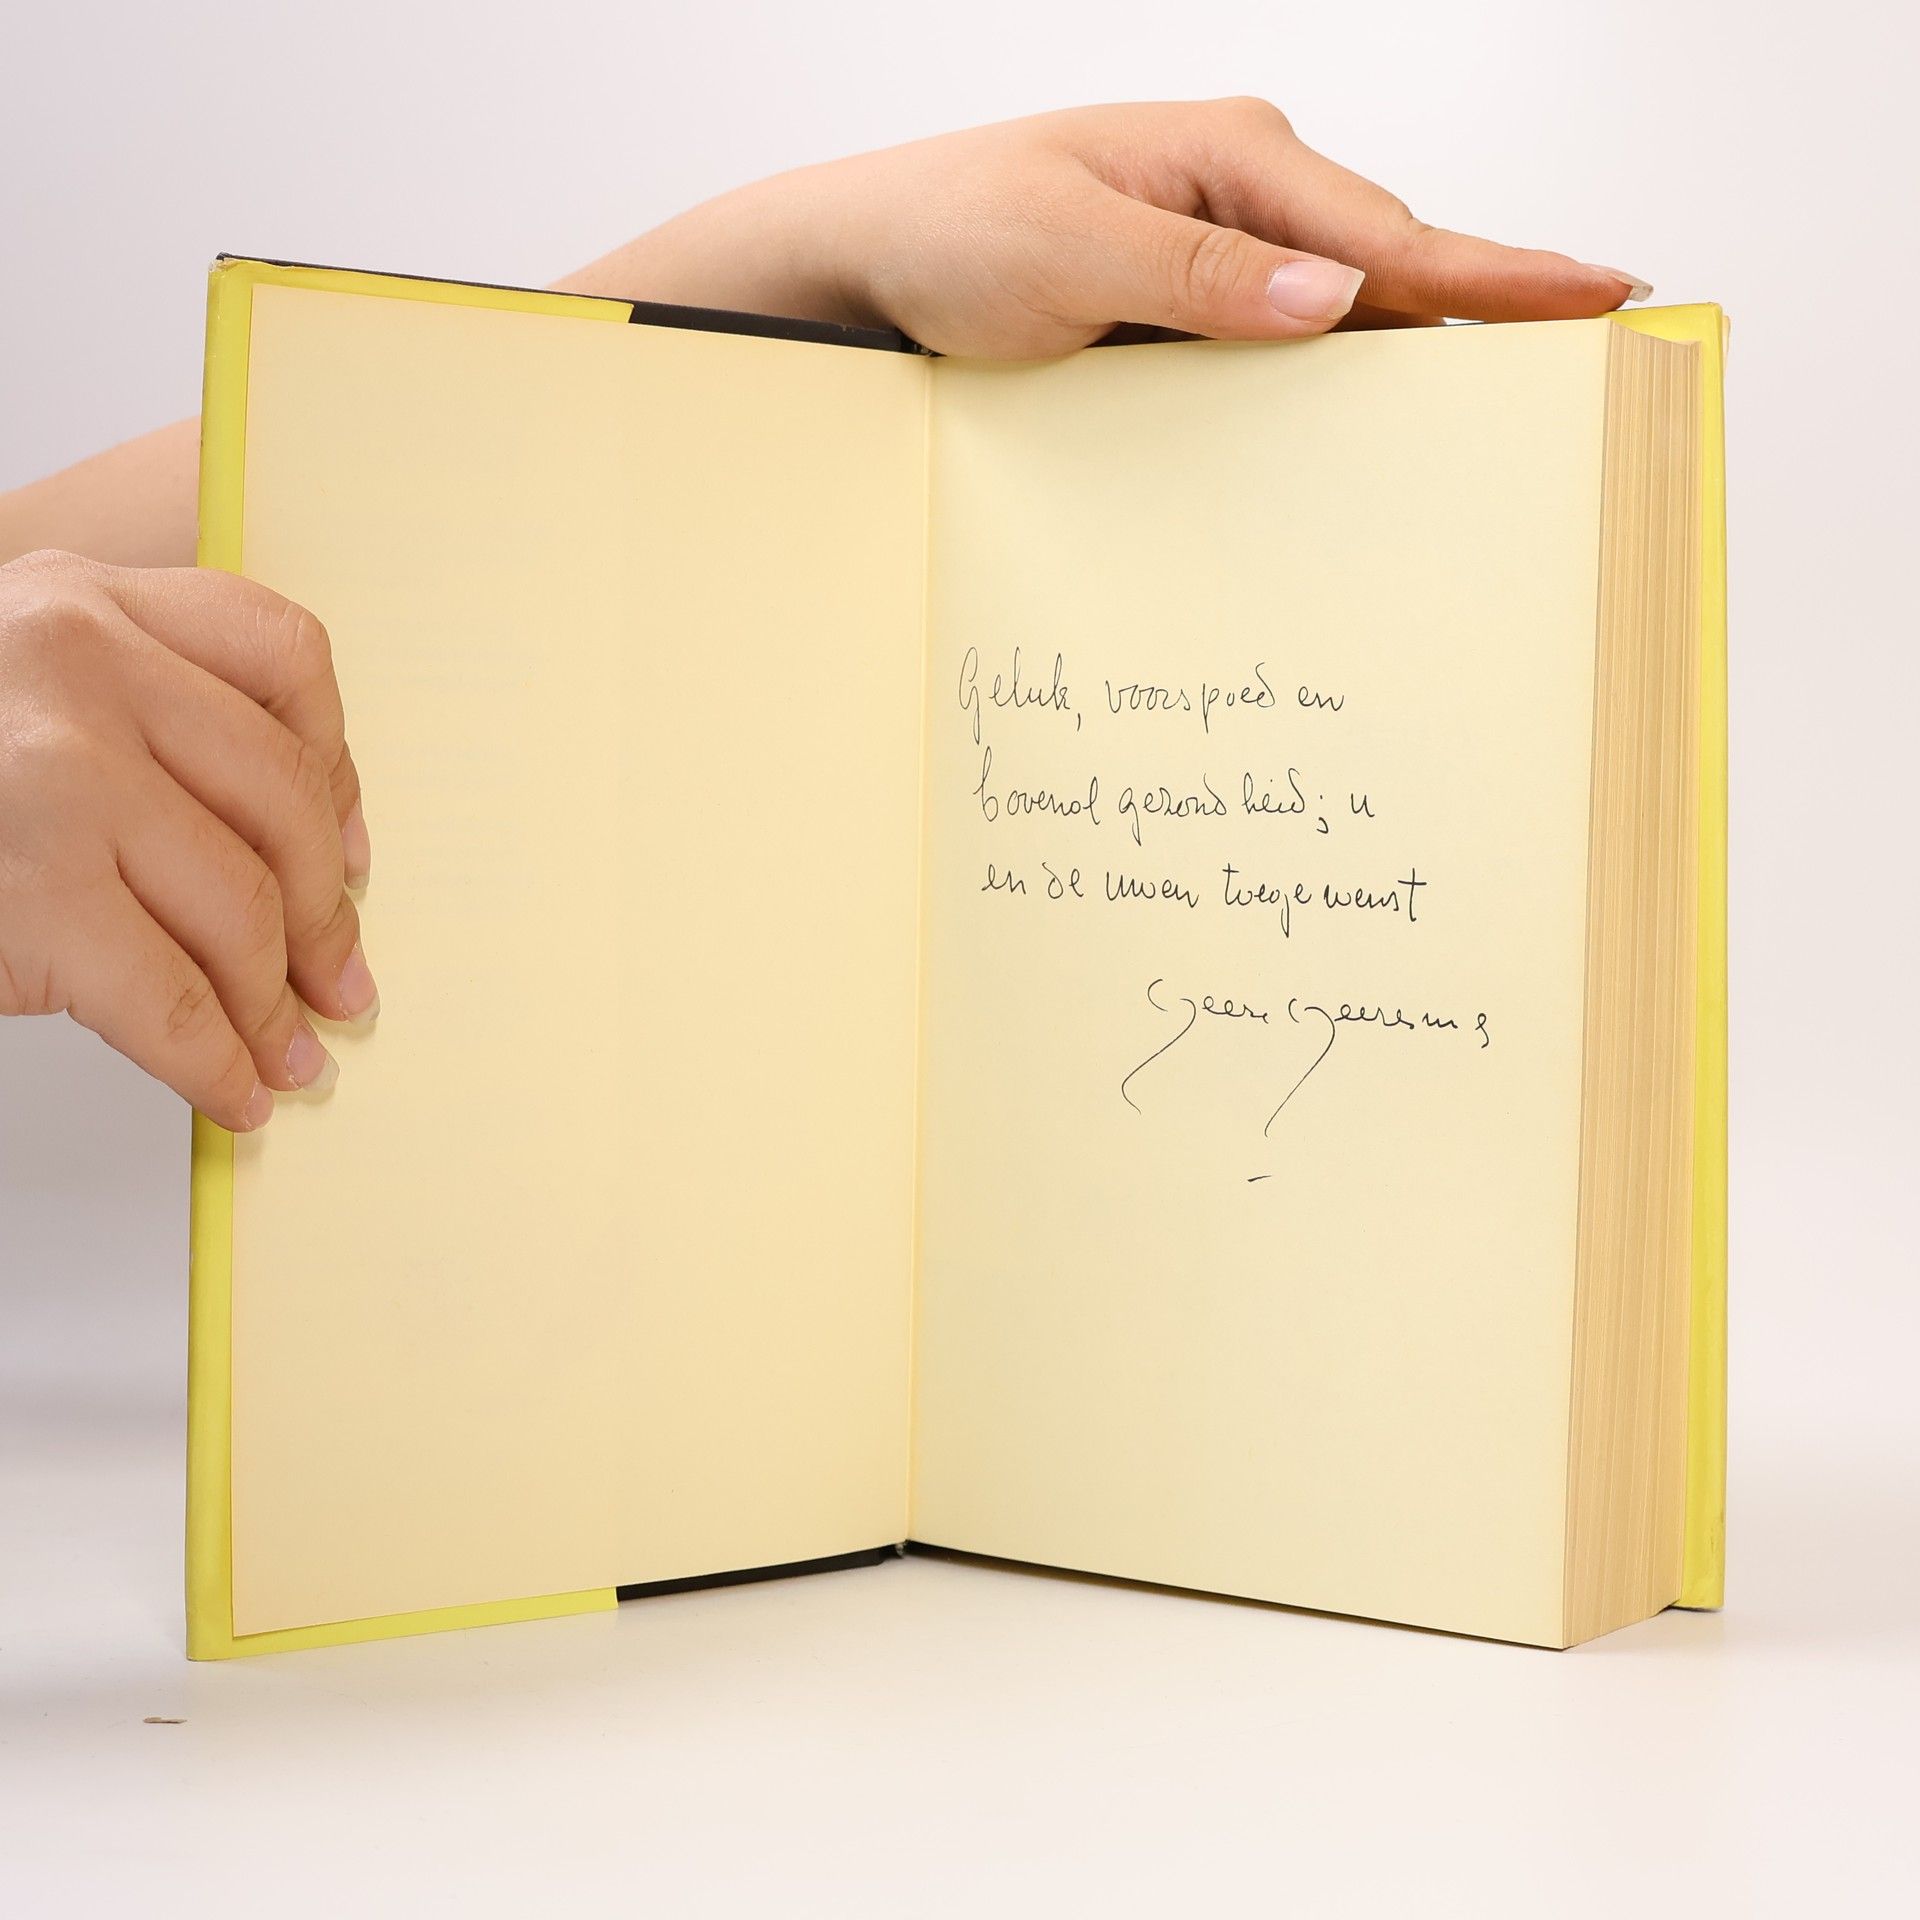 Geluk, voorspoed en
bovenal gezondheid; u
en de uwen toegewenst
Geere Geeresma